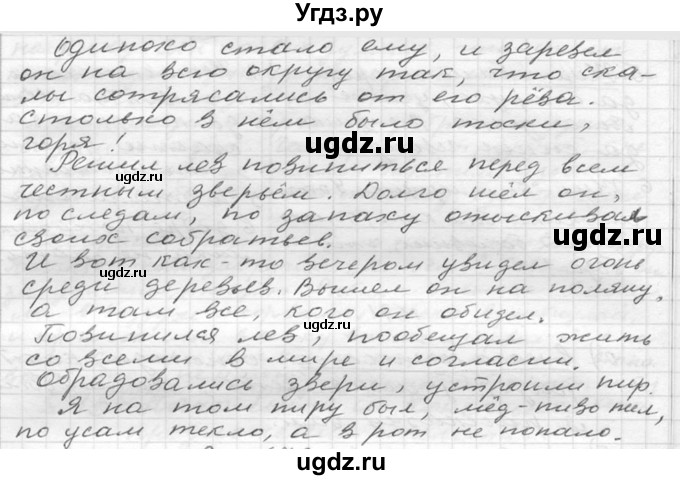 Угдз.ру
Одиноко стало ему, и заревел
он на всю округу так, что ска-
лы сотрясались от его рёва.
Столько в нём было тоски,
горя!
Решил лев повиниться перед всем
честным зверьём. Долго шёл он,
по следам, по запаху отыскивал
своих собратьев.
И вот как-то вечером увидел огонь
среди деревьев. Вышел он на поляну,
а там все, кого он обидел.
Повинился лев, пообещал жить
со всеми в мире и согласии.
Обрадовались звери, устроили пир.
Я на том пиру был, мёд-пиво пил,
по усам текло, а в рот не попало.
ugdz.ru
ugdz.ru
ugdz.ru
ugdz.ru
ugdz.ru
ugdz.ru
ugdz.ru
ugdz.ru